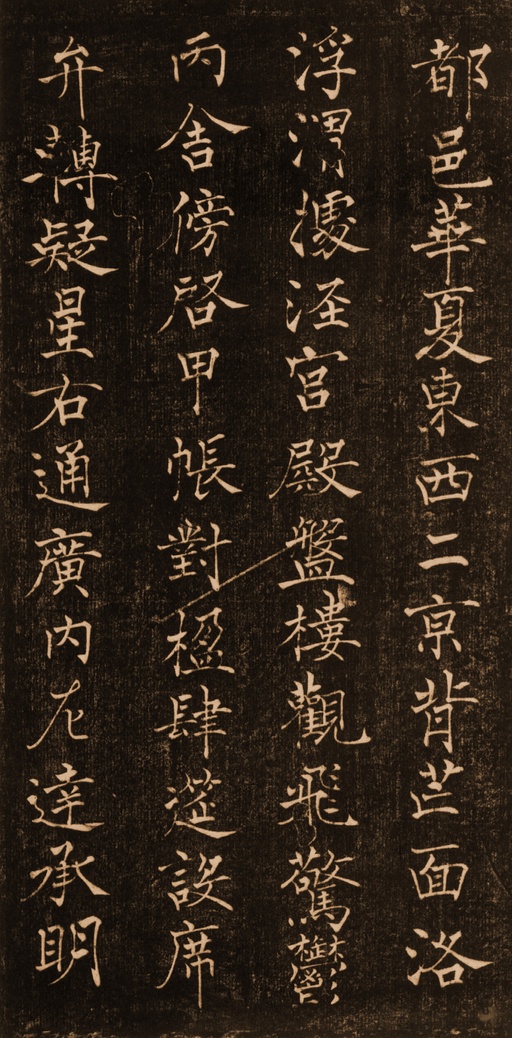 都邑華夏東西二京背芒面洛
浮渭據涇宮殿盤樓觀飛驚鬱
丙舎傍啓甲帳對楹肆筵設席
弁轉疑星右通廣內左達承明